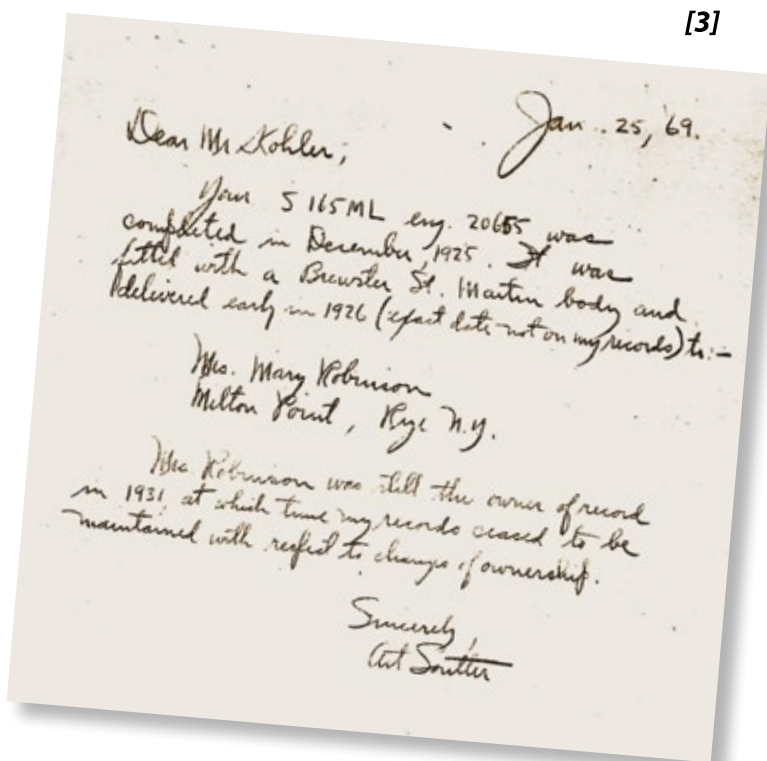 [3]
Jan. 25, 69.
Dear Mr Kohler;
Your S 165ML eng. 20655 was
completed in December, 1925. It was
fitted with a Brewster St. Martin body and
delivered early in 1926 (exact date not on my records) to:-
Mrs. Mary Robinson
Milton Point, Rye N.Y.
Mrs. Robinson was still the owner of record
in 1931 at which time my records ceased to be
maintained with respect to change of ownership.
Sincerely,
Art Soutter